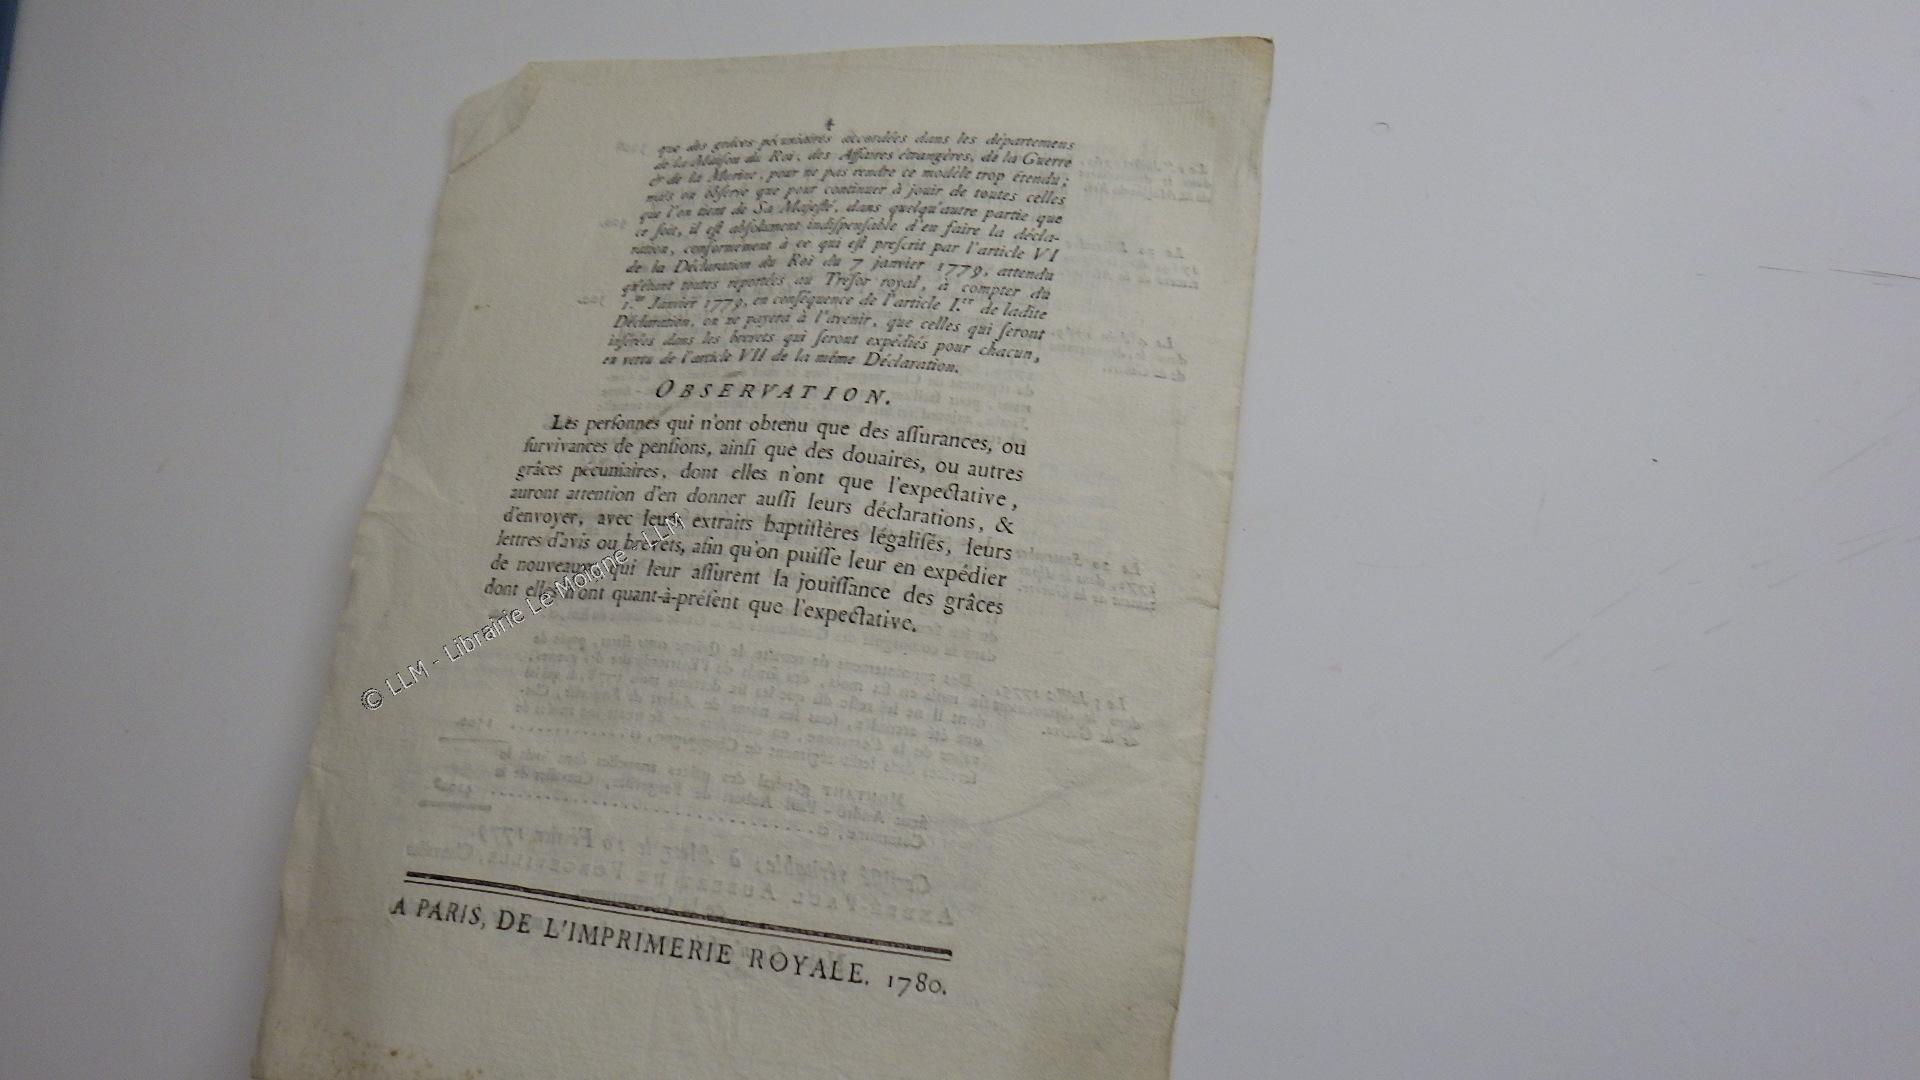 4
que des grâces pécuniaires accordées dans les départemens
de la Maiſon du Roi, des Affaires étrangères, de la Guerre
& de la Marine, pour ne pas rendre ce modèle trop étendu;
mais on obſerve que pour continuer à jouir de toutes celles
que l'on tient de Sa Majeſté, dans quelqu'autre partie que
ce ſoit, il eſt abſolument indiſpenſable d'en faire la décla-
ration, conformément à ce qui eſt preſcrit par l'article VI
de la Déclaration du Roi du 7 janvier 1779, attendu
qu'étant toutes reportées au Tréſor royal, à compter du
1.er Janvier 1779, en conſéquence de l'article I.er de ladite
Déclaration, on ne payera à l'avenir, que celles qui ſeront
inſérées dans les brevets qui ſeront expédiés pour chacun,
en vertu de l'article VII de la même Déclaration.
OBSERVATION.
Les perſonnes qui n'ont obtenu que des aſſurances, ou
ſurvivances de penſions, ainſi que des douaires, ou autres
grâces pécuniaires, dont elles n'ont que l'expectative,
auront attention d'en donner auſſi leurs déclarations, &
d'envoyer, avec leurs extraits baptiſtères légaliſés, leurs
lettres d'avis ou brevets, afin qu'on puiſſe leur en expédier
de nouveaux, qui leur aſſurent la jouiſſance des grâces
dont elles n'ont quant-à-préſent que l'expectative.
A PARIS, DE L'IMPRIMERIE ROYALE. 1780.
© LLM - Librairie Le Moigne - LLM